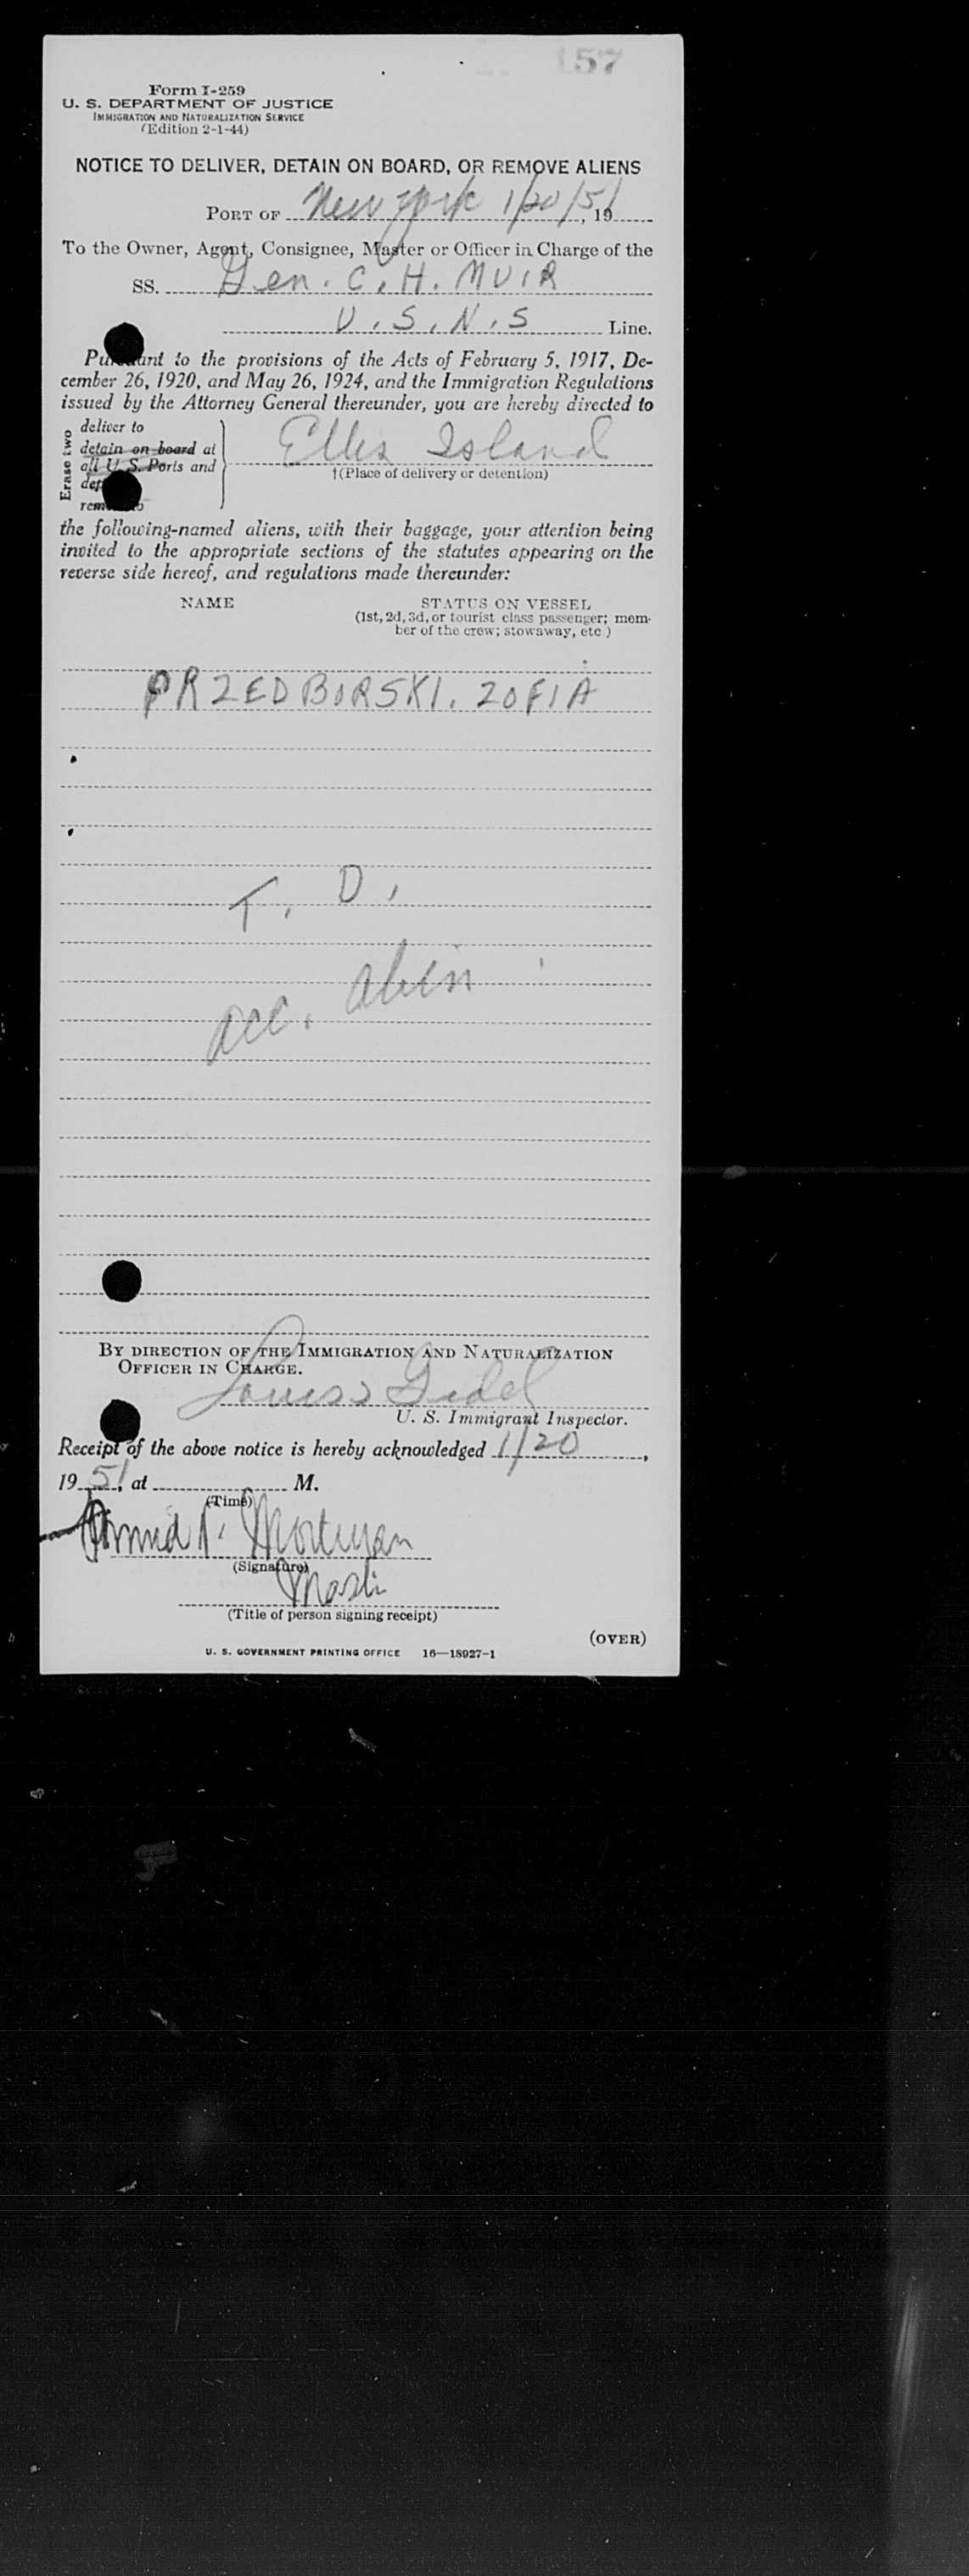 157
Form I-259
U. S. DEPARTMENT OF JUSTICE
IMMIGRATION AND NATURALIZATION SERVICE
(Edition 2-1-44)
NOTICE TO DELIVER, DETAIN ON BOARD, OR REMOVE ALIENS
PORT OF New York 1/20/51, 19
To the Owner, Agent, Consignee, Master or Officer in Charge of the
SS. Gen. C. H. MUIR
U.S.N.S Line.
Pursuant to the provisions of the Acts of February 5, 1917, De-
cember 26, 1920, and May 26, 1924, and the Immigration Regulations
issued by the Attorney General thereunder, you are hereby directed to
Erase two
deliver to
detain on board at
all U. S. Ports and
remove to
Ellis Island
†(Place of delivery or detention)
the following-named aliens, with their baggage, your attention being
invited to the appropriate sections of the statutes appearing on the
reverse side hereof, and regulations made thereunder:
NAME STATUS ON VESSEL
(1st, 2d, 3d, or tourist class passenger; mem-
ber of the crew; stowaway, etc.)
PRZEDBORSKI, ZOFIA
T. D.
acc. alien
BY DIRECTION OF THE IMMIGRATION AND NATURALIZATION
OFFICER IN CHARGE.
U. S. Immigrant Inspector.
Receipt of the above notice is hereby acknowledged 1/20,
1951, at M.
(Time)
(Signature)
(Title of person signing receipt)
(OVER)
U. S. GOVERNMENT PRINTING OFFICE 16—18927-1